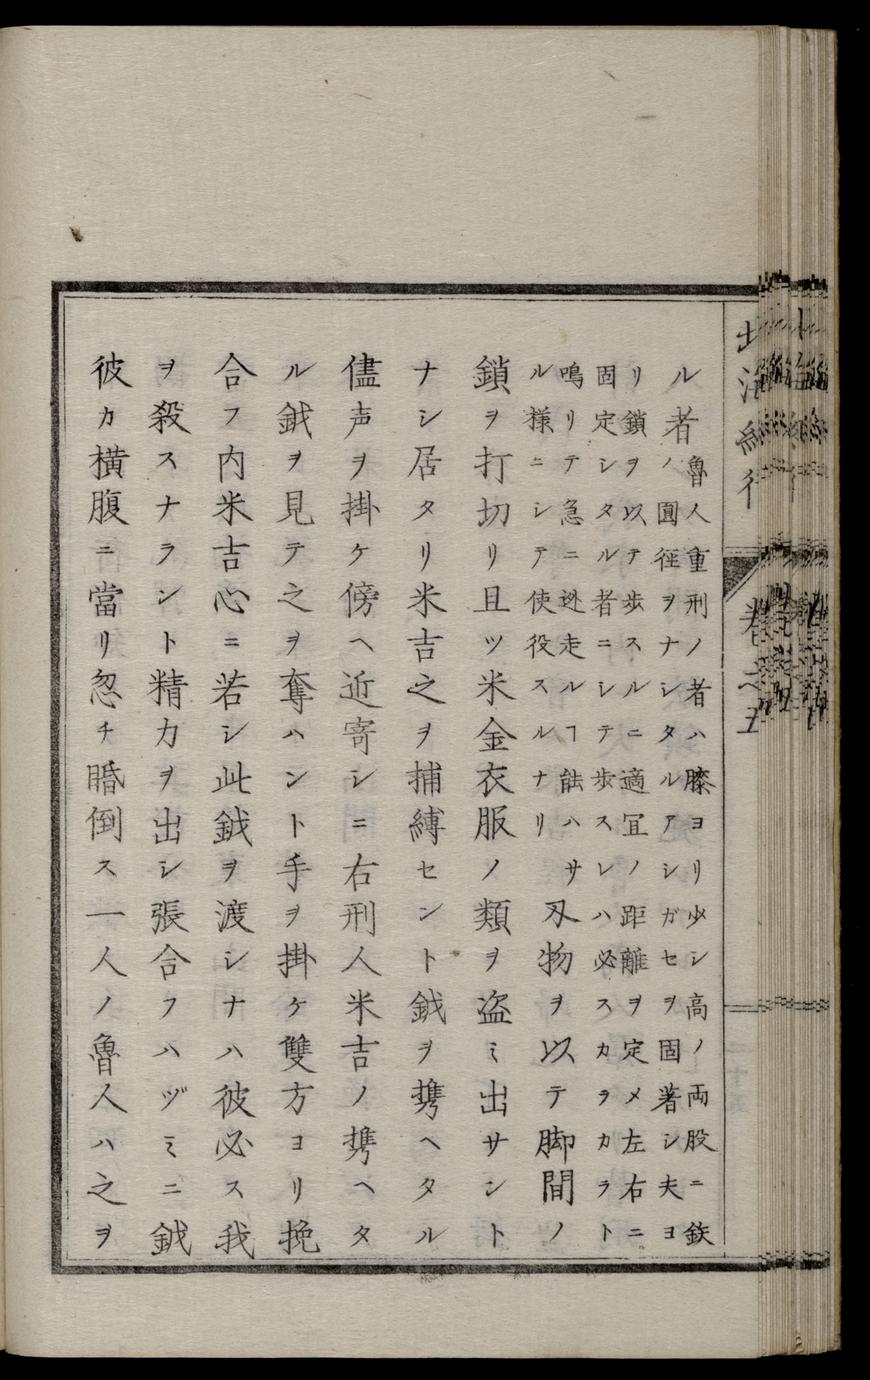 北海紀行 卷之五
ル者魯人重刑ノ者ハ膝ヨリ少シ高ノ両股ニ鉄
ノ圓徑ヲナシタルアシガセヲ固著シ夫ヨ
リ鎖ヲ以テ歩スルニ適冝ノ距離ヲ定メ左右ニ
固定シタル者ニシテ歩スレハ必スカラカラト
鳴リテ急ニ迯走ルヿ能ハサ
ル様ニシテ使役スルナリ刄物ヲ以テ脚間ノ
鎖ヲ打切リ且ツ米金衣服ノ類ヲ盗ミ出サント
ナシ居タリ米吉之ヲ捕縛セント鉞ヲ携ヘタル
儘声ヲ掛ケ傍ヘ近寄シニ右刑人米吉ノ携ヘタ
ル鉞ヲ見テ之ヲ奪ハント手ヲ掛ケ雙方ヨリ挽
合フ内米吉心ニ若シ此鉞ヲ渡シナハ彼必ス我
ヲ殺スナラント精力ヲ出シ張合フハヅミニ鉞
彼カ横腹ニ當リ忽チ昏倒ス一人ノ魯人ハ之ヲ